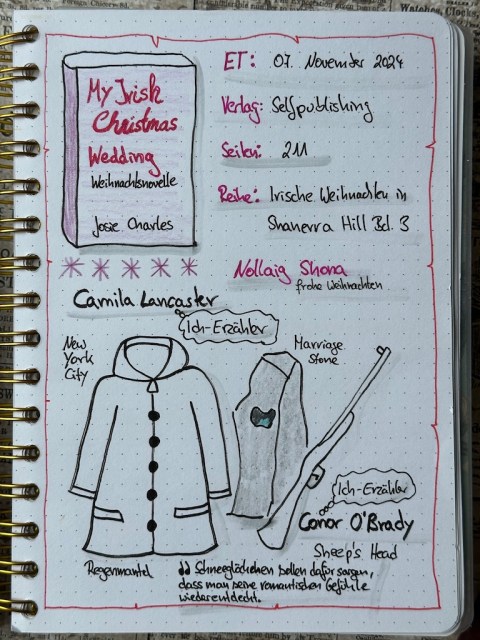 My Irish
Christmas
Wedding
Weihnachtsnovelle
Josie Charles
ET: 07. November 2024
Verlag: Selfpublishing
Seiten: 211
Reihe: Irische Weihnachten in
Shanerra Hill Bd. 3
Nollaig Shona
frohe Weihnachten
Camila Lancaster
Ich-Erzähler
New
York
City
Marriage
Stone
Ich-Erzähler
Conor O'Brady
Sheep's Head
Regenmantel
Schneeglöckchen sollen dafür sorgen,
dass man seine romantischen Gefühle
wiederentdeckt.